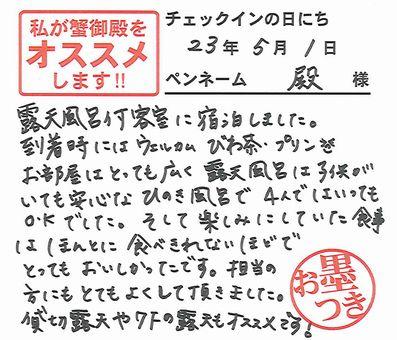 私が蟹御殿を
オススメ
します!!
チェックインの日にち
23年5月1日
ペンネーム 殿 様
露天風呂付客室に宿泊しました。
到着時にはウェルカム びわ茶・プリンを
お部屋はとっても広く 露天風呂は子供が
いても安心な ひのき風呂で 4人ではいっても
OKでした。そして楽しみにしていた食事
は ほんとに 食べきれないほどで
とっても おいしかったです。担当の
方にも とてもよくして頂きました。
貸切露天や の露天もオススメです!
お墨つき